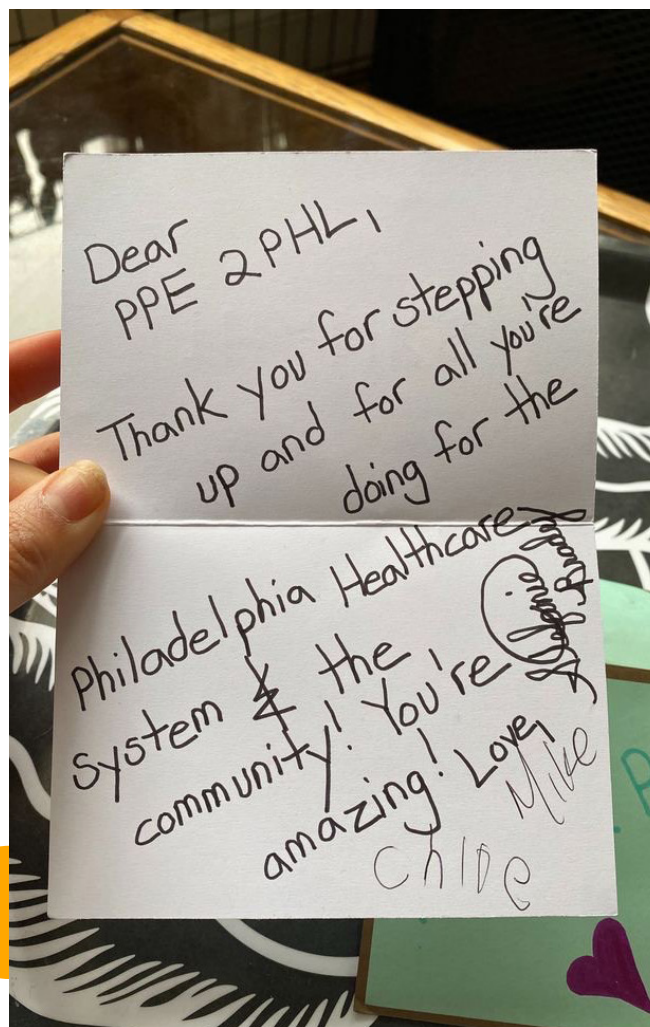 Dear
PPE 2PHL,
Thank you for stepping
up and for all you're
doing for the
Philadelphia Healthcare
system & the
community! You're
amazing! Love,
Mike
Chloe